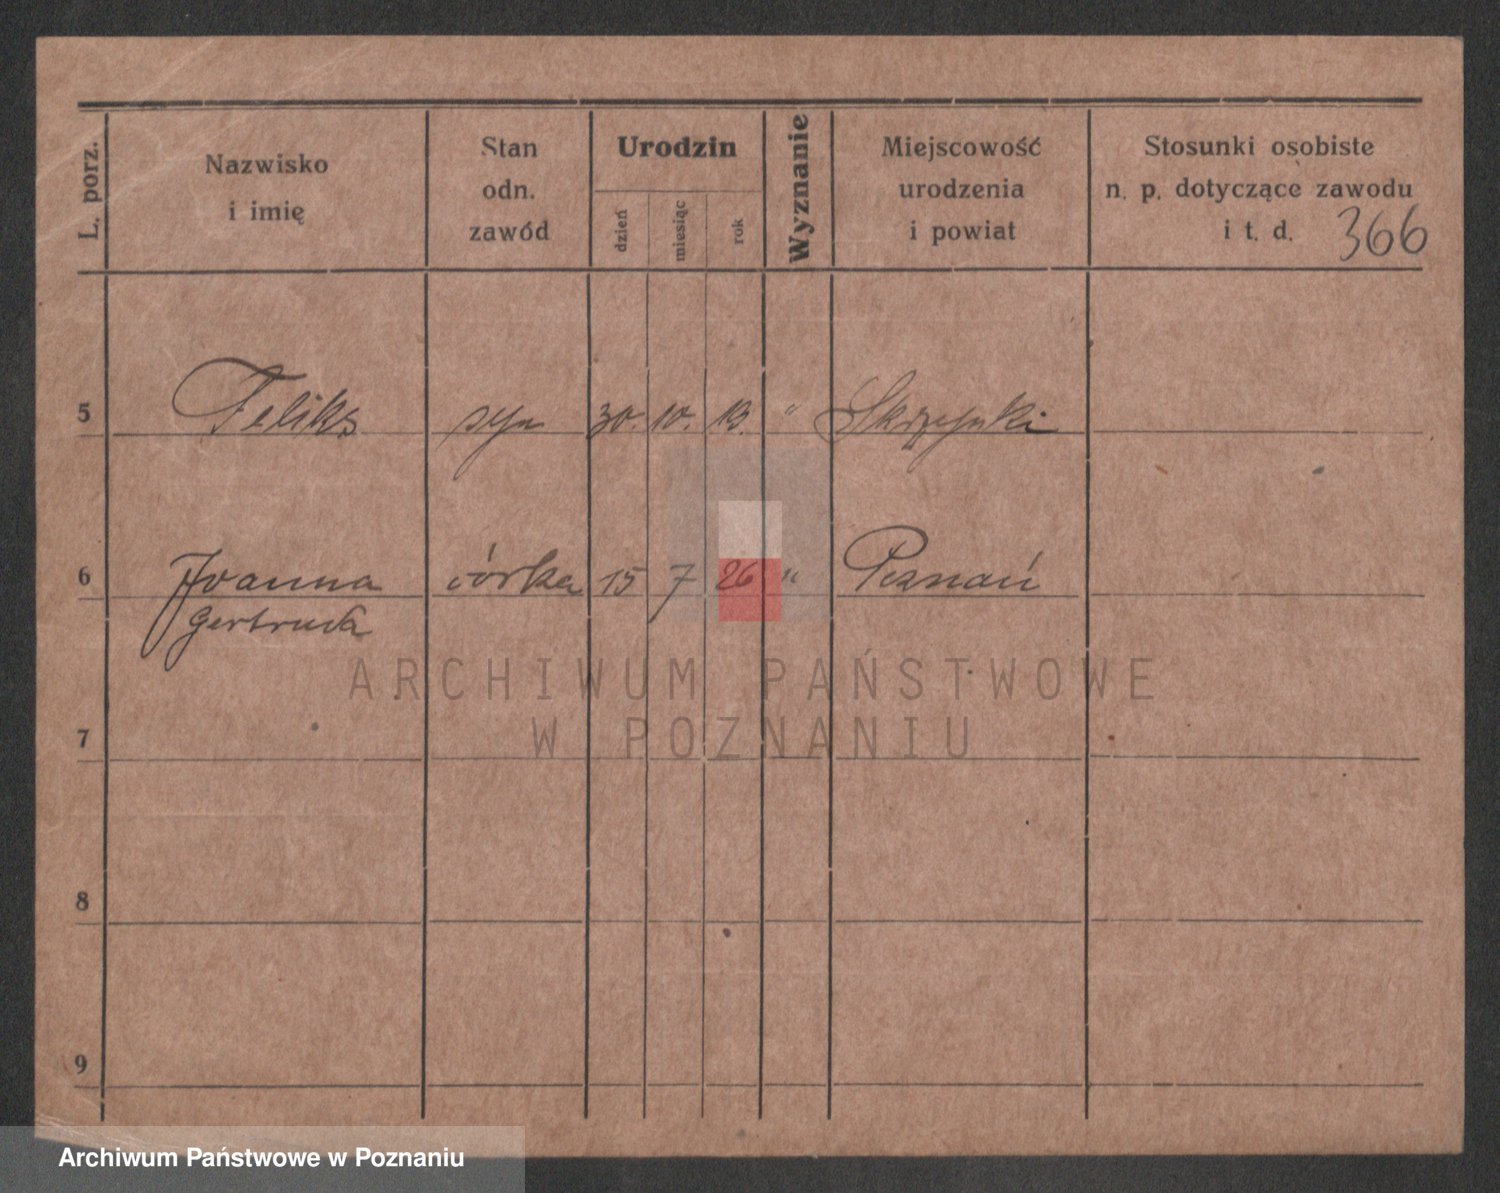 L. porz.
Nazwisko
i imię
Stan
odn.
zawód
Urodzin
dzień
miesiąc
rok
Wyznanie
Miejscowość
urodzenia
i powiat
Stosunki osobiste
n. p. dotyczące zawodu
i t. d. 366
5 Feliks syn 30. 10. 13. " Skrzynki
6 Joanna córka 15 7 26 " Poznań
Gertruda
7
8
9
ARCHIWUM PAŃSTWOWE
W POZNANIU
Archiwum Państwowe w Poznaniu